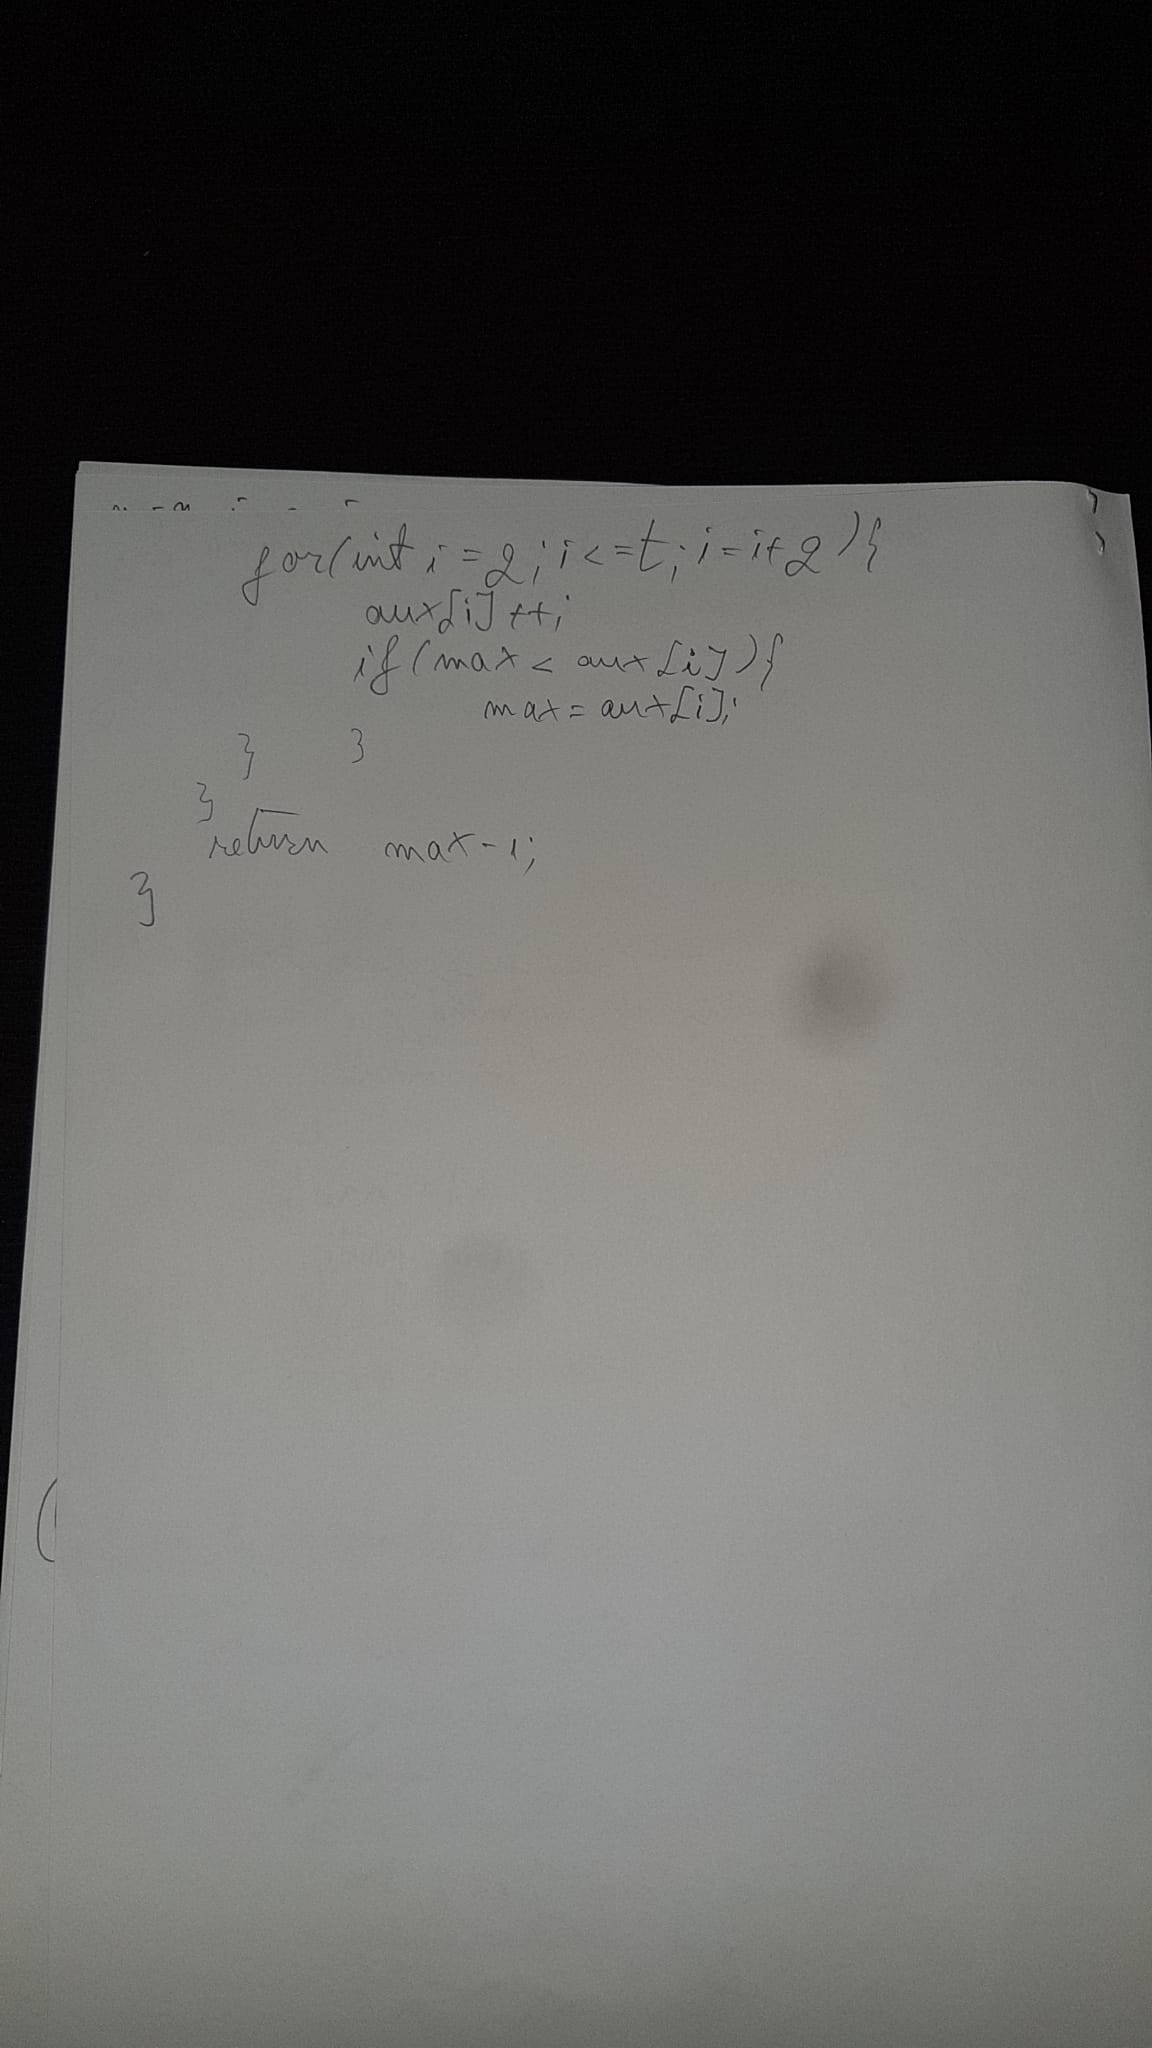 for(int i=2;i<=t;i=i+2){
aux[i]++;
if(max < aux[i]){
max=aux[i];
} }
}
return max-1;
}